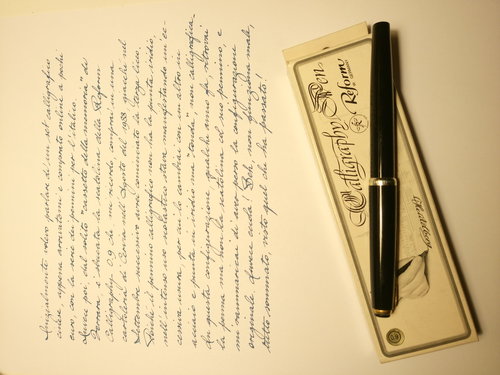 Inizialmente volevo parlare di un set calligrafico
cinese, appena arrivatomi e comprato online a pochi
euro, con la serie dei pennini per l'italico.
Invece poi, dal solito "cassetto della memoria" di
Ferrara è sbucata la scatolina della Reform
Calligraphy 0,9 che mi ricordo, comprai in una
cartoleria di Cervia nell'Agosto del 1988 giacché nel
Settembre successivo avrei cominciato la terza liceo.
Poiché il pennino calligrafico non ha la punta iridio,
nell'intenso uso scolastico stava manifestando un'ec-
cessiva usura, per cui lo cambiai con un altro in
acciaio e punta in iridio ma "tonda", non calligrafica.
In questa configurazione, qualche anno fa ritrovai
la penna ma non la scatolina col suo pennino, e
mi rammaricai di aver perso la configurazione
originale. Invece eccola! Beh, non funziona male,
tutto sommato, visto quel che ha passato!
Calligraphy Pen
Reform
GERMANY